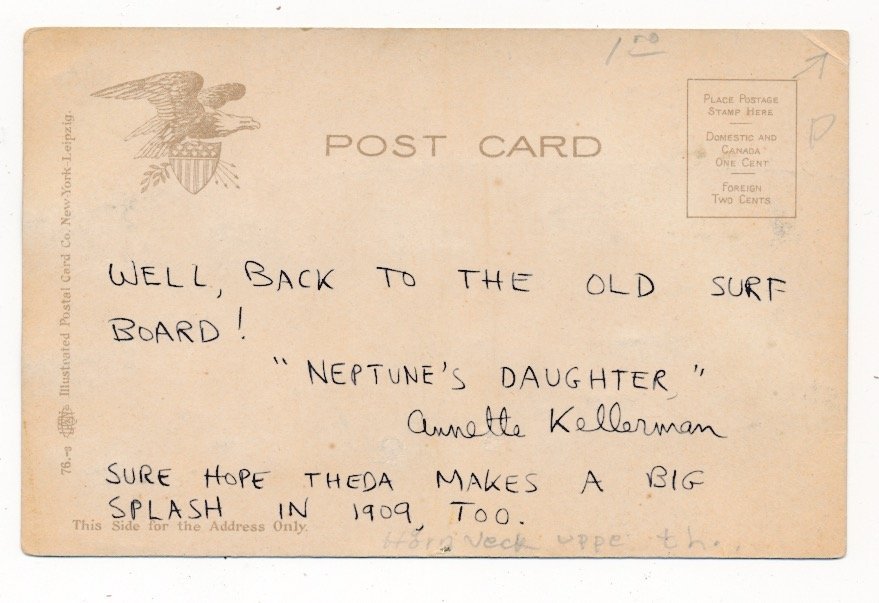 1 00
POST CARD
PLACE POSTAGE
STAMP HERE
DOMESTIC AND
CANADA
ONE CENT
FOREIGN
TWO CENTS
D
76.-3 Illustrated Postal Card Co. New York-Leipzig.
WELL, BACK TO THE OLD SURF
BOARD!
"NEPTUNE'S DAUGHTER,"
Annette Kellerman
SURE HOPE THEDA MAKES A BIG
SPLASH IN 1909, TOO.
This Side for the Address Only.